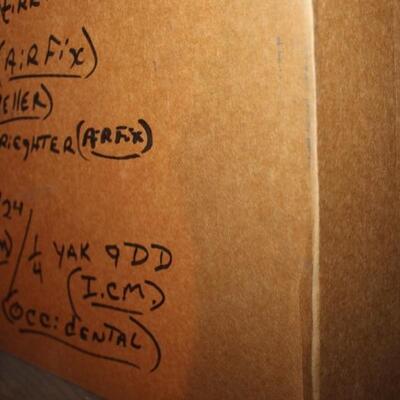 (AiRFix)
RiGHTER (AiRFix)
24
1/4 YAK 9DD
(I.CM.)
(OCCidENTAL)